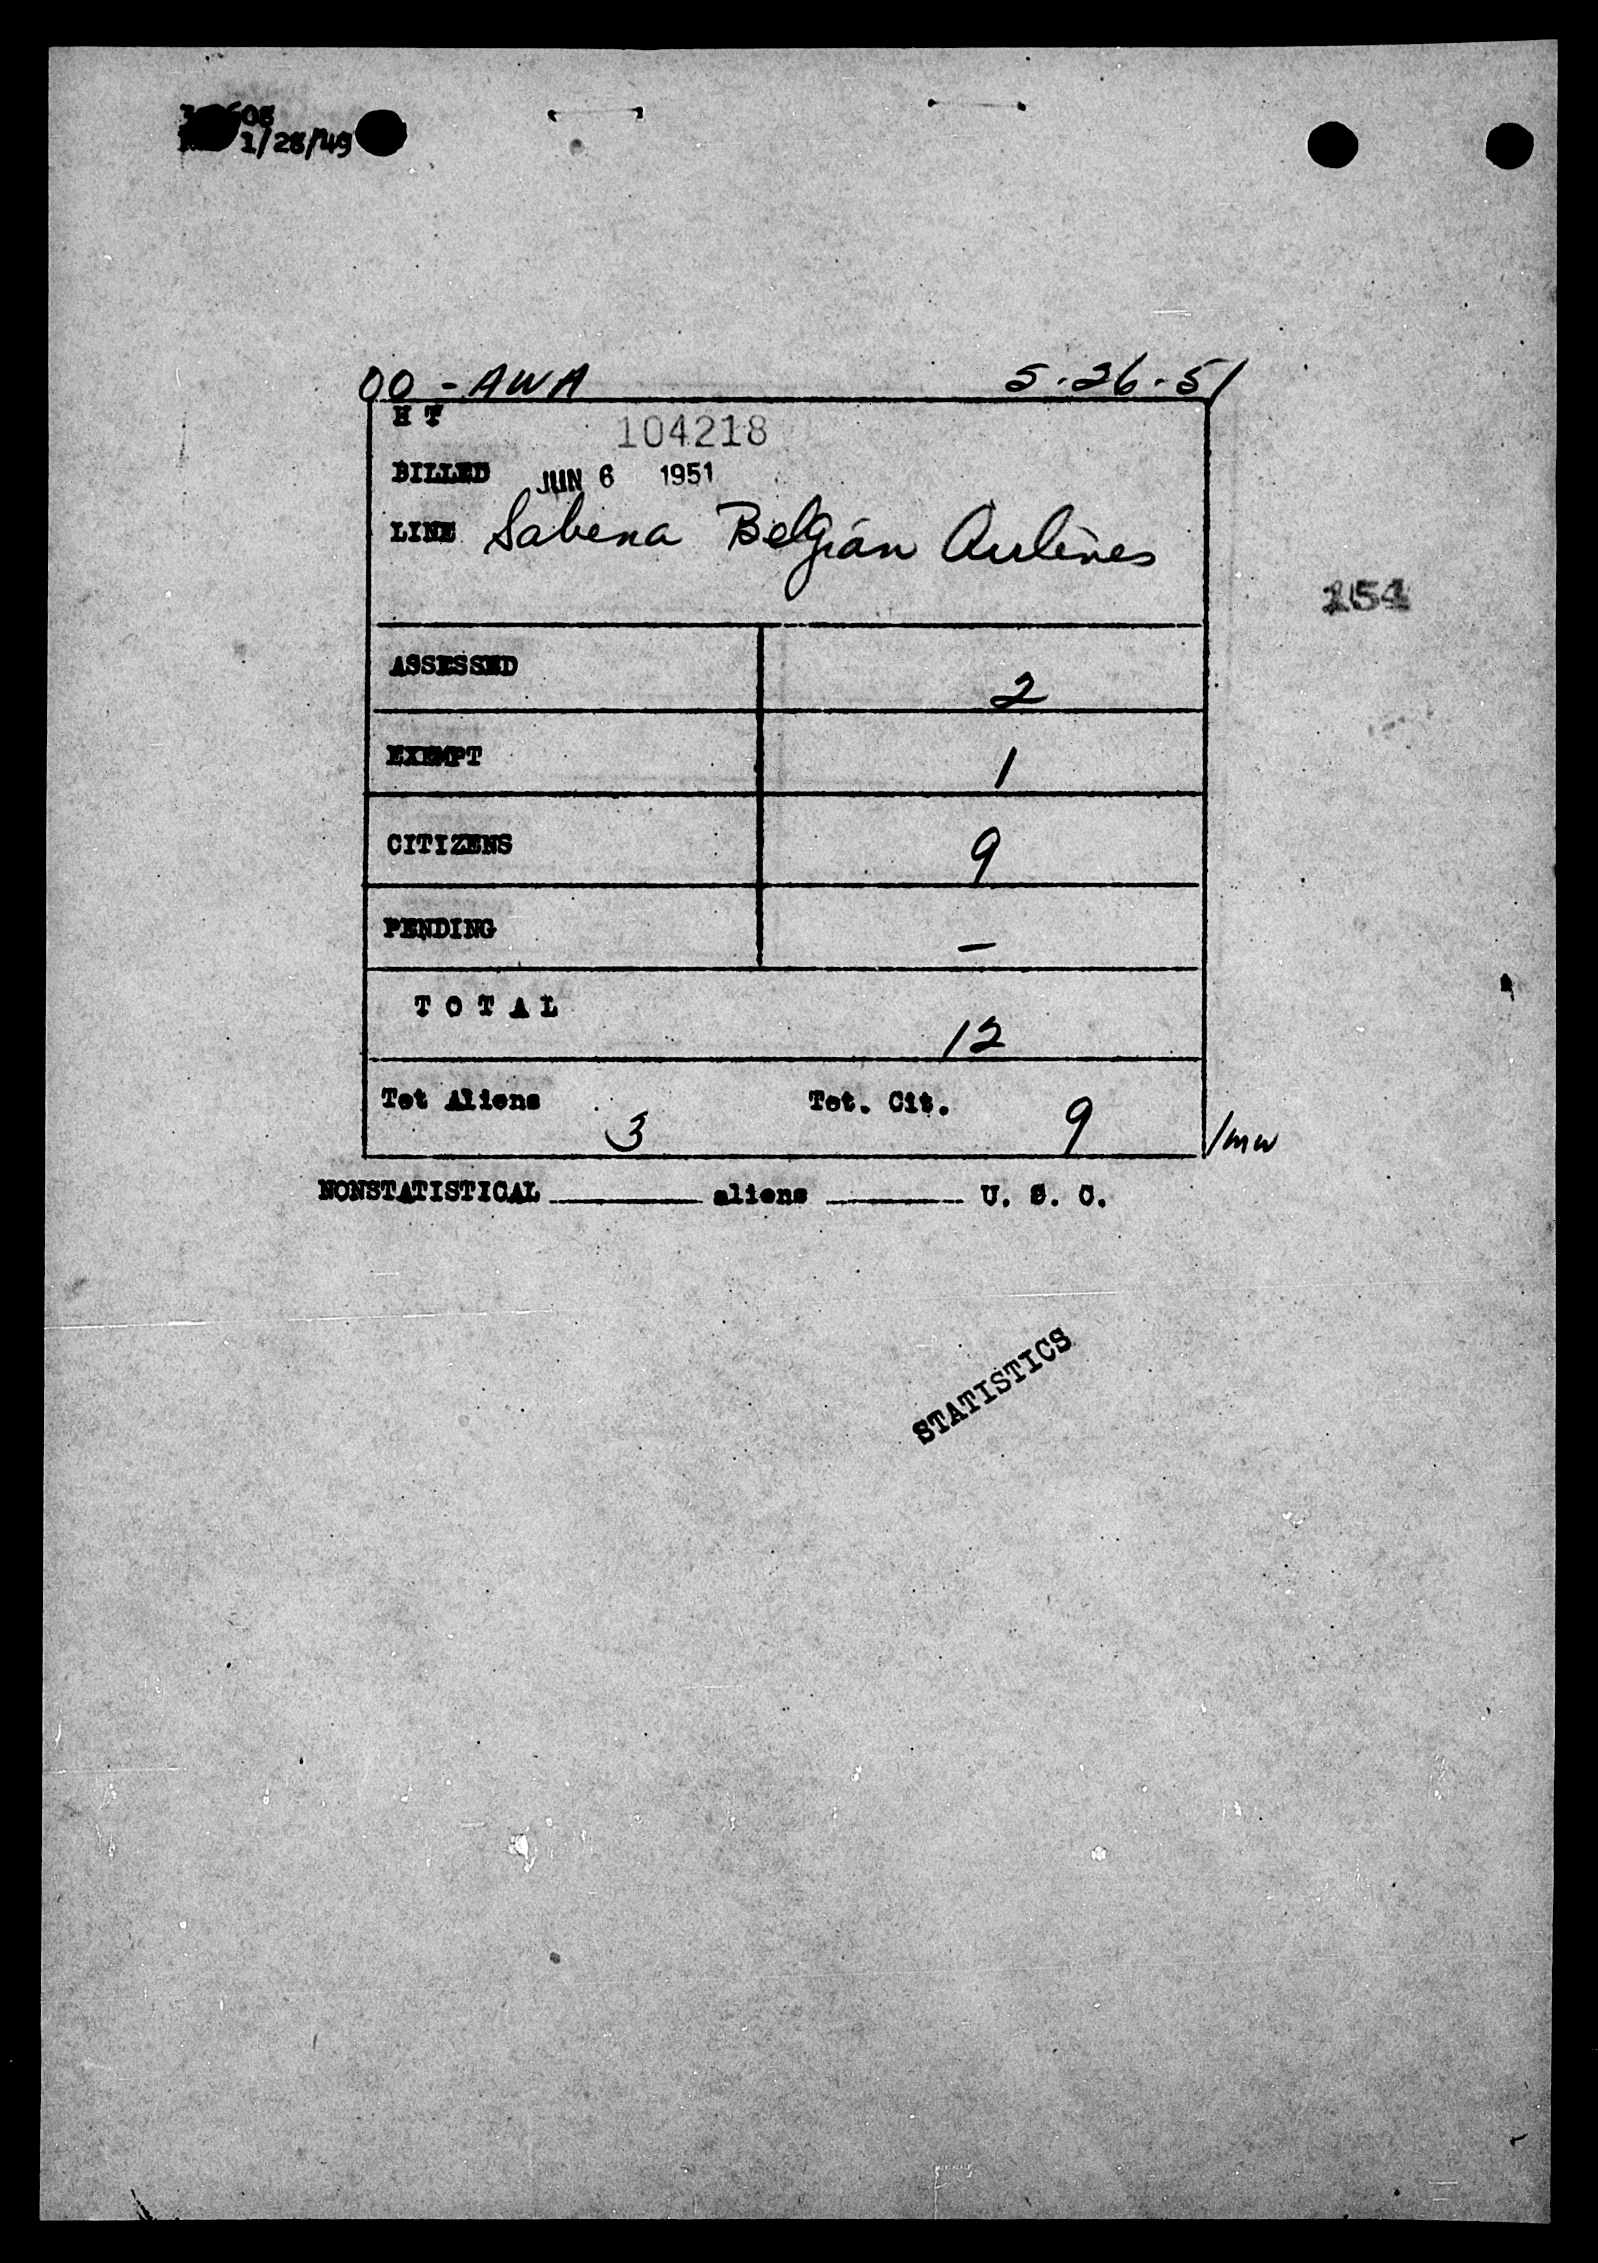 1/28/49
OO - AWA 5-26-51
H T 104218
BILLED JUN 6 1951
LINE Sabena Belgian Airlines
154
ASSESSED 2
EXEMPT 1
CITIZENS 9
PENDING —
T O T A L 12
Tot Aliens 3 Tot. Cit. 9 /mw
NONSTATISTICAL ________ aliens ________ U. S. C.
STATISTICS